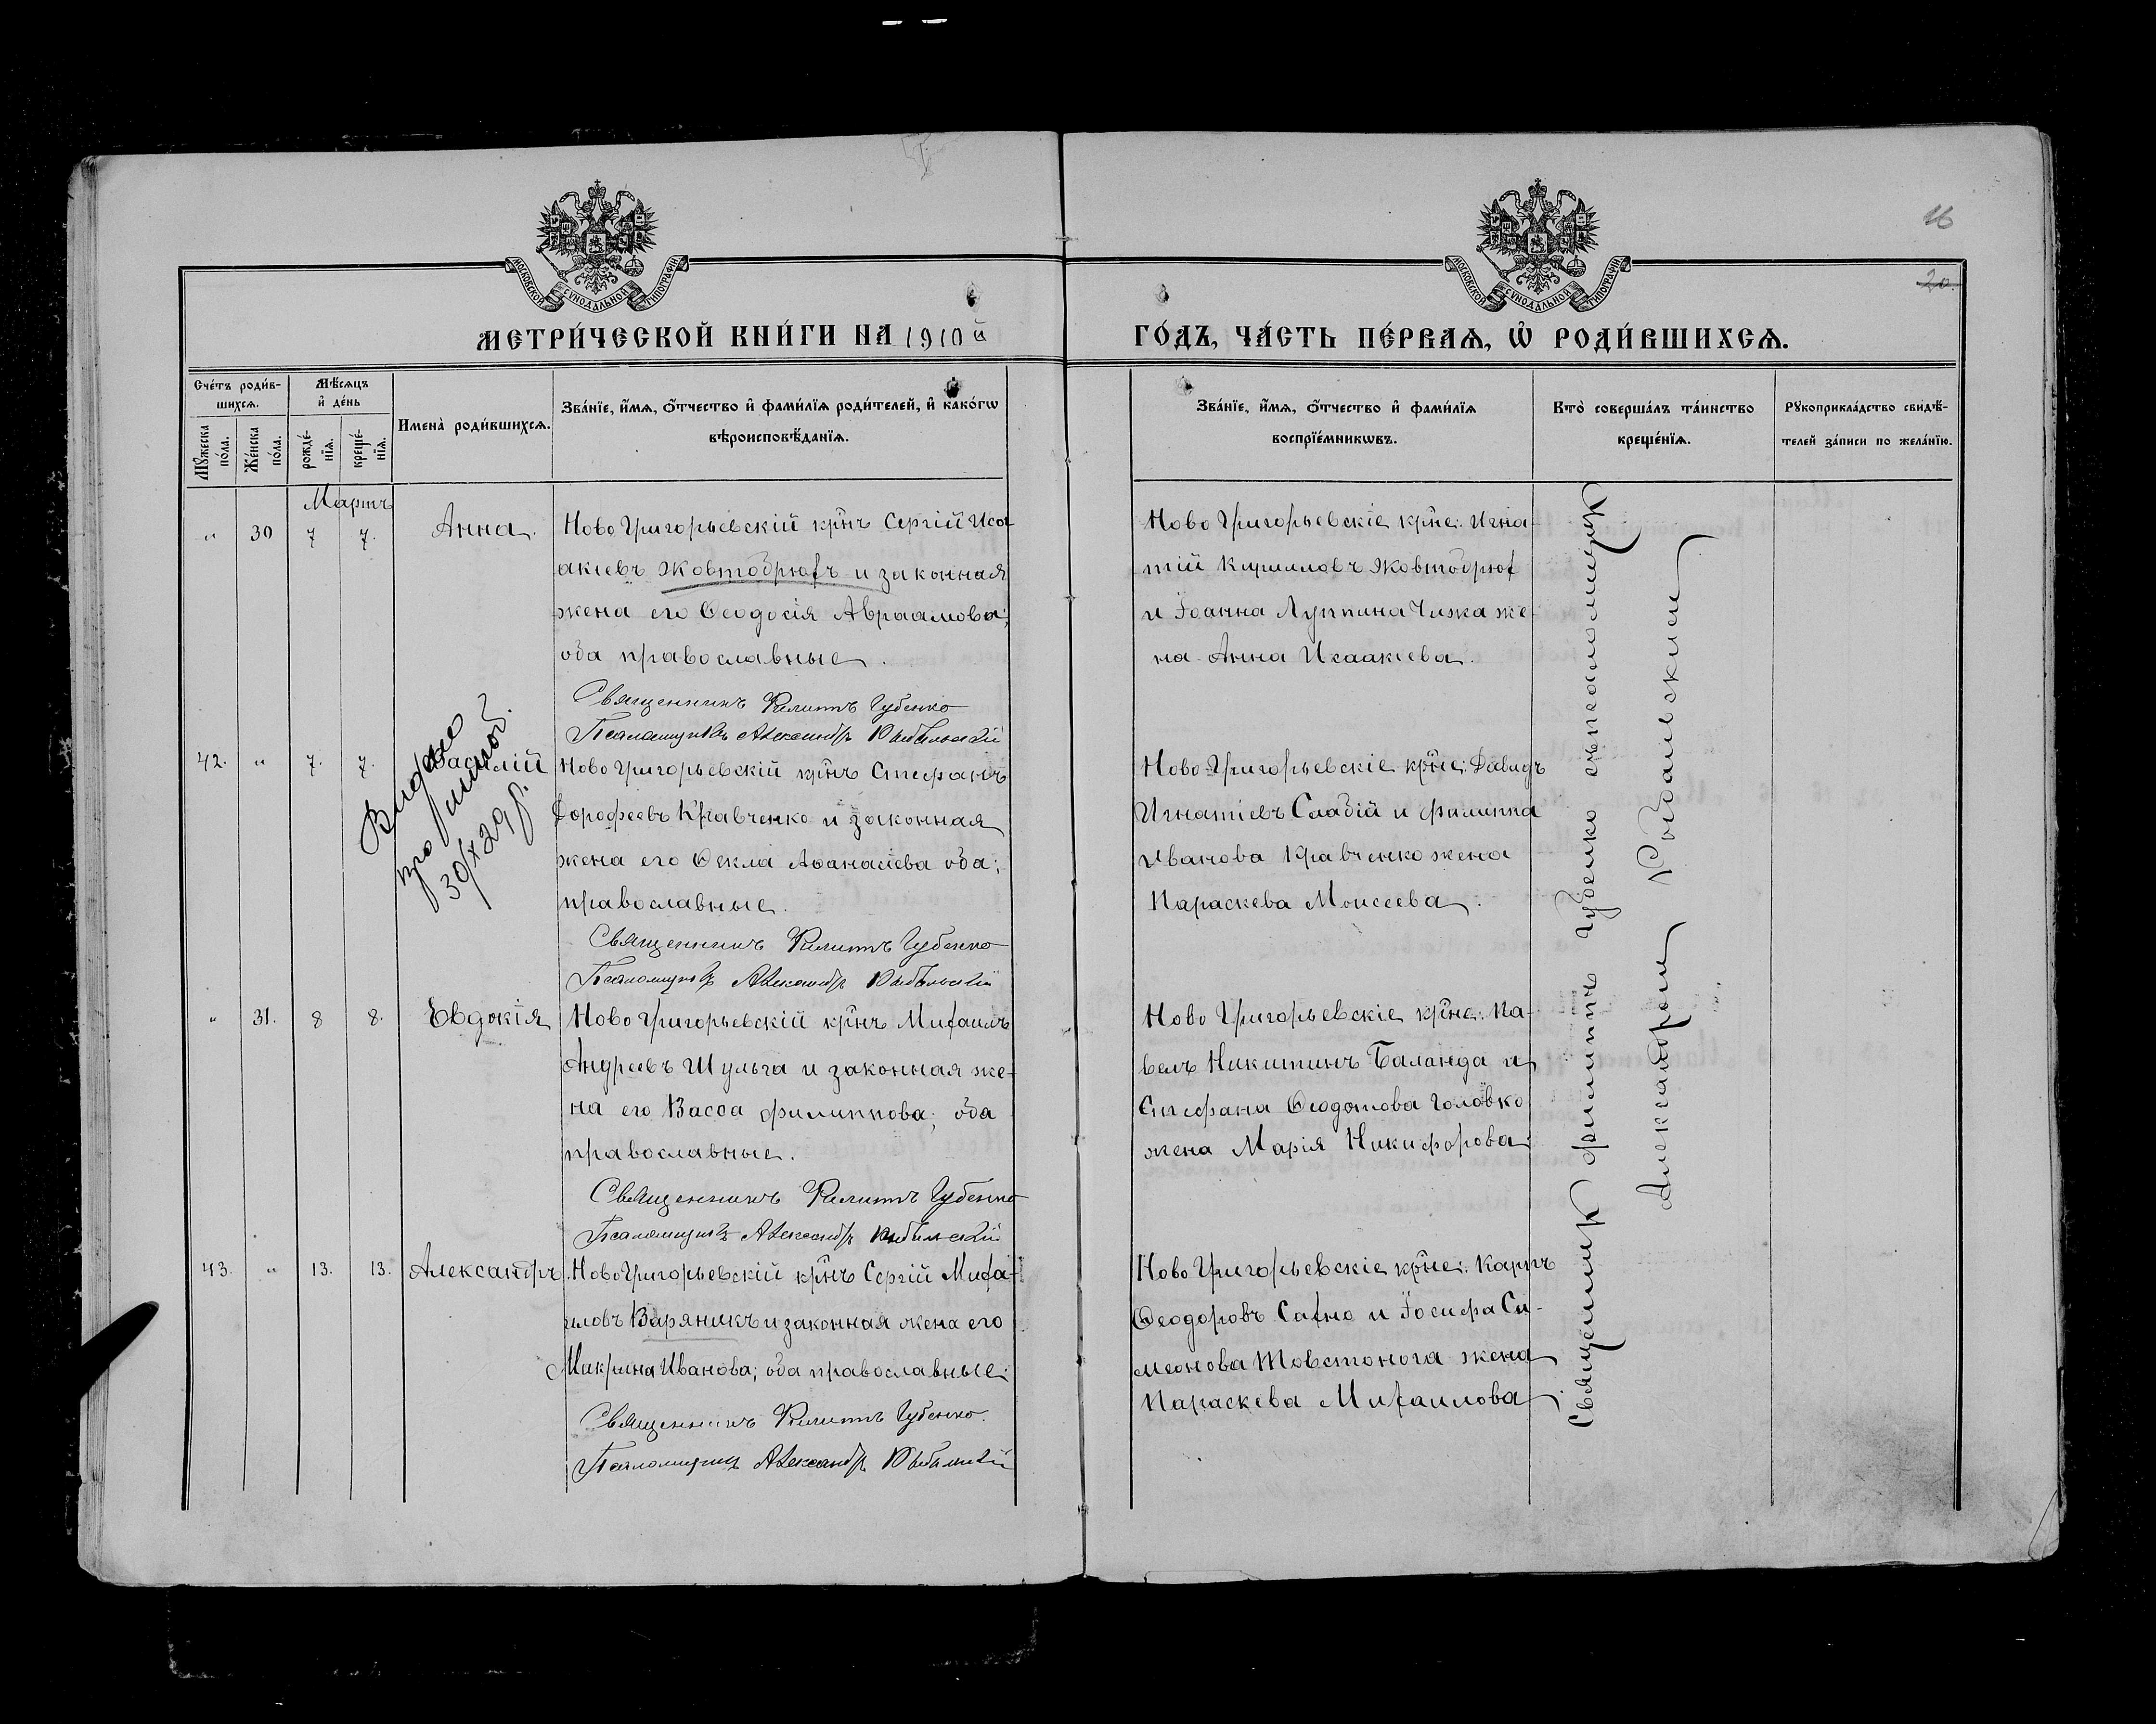 16
20
МОСКОВСКОЙ СѴНОДАЛЬНОЙ ТИПОГРАФІИ
МОСКОВСКОЙ СѴНОДАЛЬНОЙ ТИПОГРАФІИ
МЕТРИ́ЧЕСКОЙ КНИ́ГИ НА 1910й
ГО́ДЪ, ЧА́СТЬ ПЕ́РВАѦ, Ѡ҆ РОДИ́ВШИХСѦ.
Сче́тъ роди́в-
шихсѧ.
Мꙋ́жеска
по́ла.
Же́нска
по́ла.
Мѣ́сѧцъ
и҆ де́нь
рожде́-
нїѧ.
креще́-
нїѧ.
Имена̀ роди́вшихсѧ.
Зва́нїе, и҆́мѧ, ѻ҆́тчество и҆ фами́лїѧ роди́телей, и҆ како́гѡ
вѣроисповѣ́данїѧ.
Зва́нїе, и҆́мѧ, ѻ҆́тчество и҆ фами́лїѧ
воспрїе́мникѡвъ.
Кто̀ соверша́лъ та́инство
креще́нїѧ.
Рꙋкоприкла́дство свидѣ́-
телей за́писи по жела́нїю.
Мартъ
" 30 7 7. Анна.
Ново Григорьевскій крⷭ҇нъ Сергій Иса-
акіевъ Жовтобрюхъ и законная
жена его Ѳеодосія Авраамова;
оба православные.
Священникъ Филиппъ Губенко
Псаломщикъ Александръ
Ново Григорьевскіе крⷭ҇не: Игна-
тій Кирилловъ Жовтобрюх
и Іоанна Луппина Чижа же-
на Анна Исаакіева.
42. " 7. 7. Василій
Видано
30/X 29 р.
Ново Григорьевскій крⷭ҇нъ Стефанъ
Дорофеевъ Кравченко и законная
жена его Ѳекла Аѳанасіева оба;
православные.
Священникъ Филиппъ Губенко
Псаломщикъ Александръ
Ново-Григорьевскіе крⷭ҇не: Давидъ
Игнатіевъ Слабій и Филиппа
Иванова Кравченко жена
Параскева Моисеева.
" 31. 8 8. Евдокія
Ново Григорьевскій крⷭ҇нъ Михаилъ
Андреевъ Шульга и законная же-
на его Васса Филиппова; оба
православные.
Священникъ Филиппъ Губенко
Псаломщикъ Александръ
Ново Григорьевскіе крⷭ҇не: Па-
велъ Никитинъ Баланда и
Стефана Ѳеодотова Головко
жена Марія Никифорова.
43. " 13. 13. Александръ.
Ново Григорьевскій крⷭ҇нъ Сергій Миха-
иловъ Варяникъ и законная жена его
Микрина Иванова; оба православные.
Священникъ Филиппъ Губенко.
Псаломщикъ Александръ
Ново Григорьевскіе крⷭ҇не: Карпъ
Ѳеодоровъ Сахно и Іосифа Си-
меонова Товстонога жена
Параскева Михаилова.
Священник Филиппъ Губенко съ псаломщик
Александром